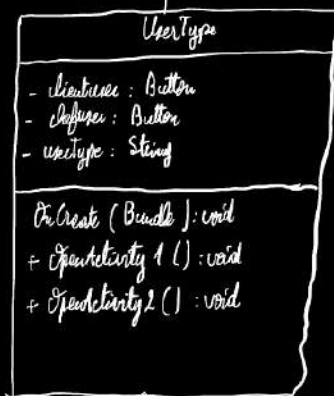 UserType
- clientuser : Button
- chefuser : Button
- userType : String
OnCreate ( Bundle ) : void
+ OpenActivity 1 () : void
+ OpenActivity 2 () : void